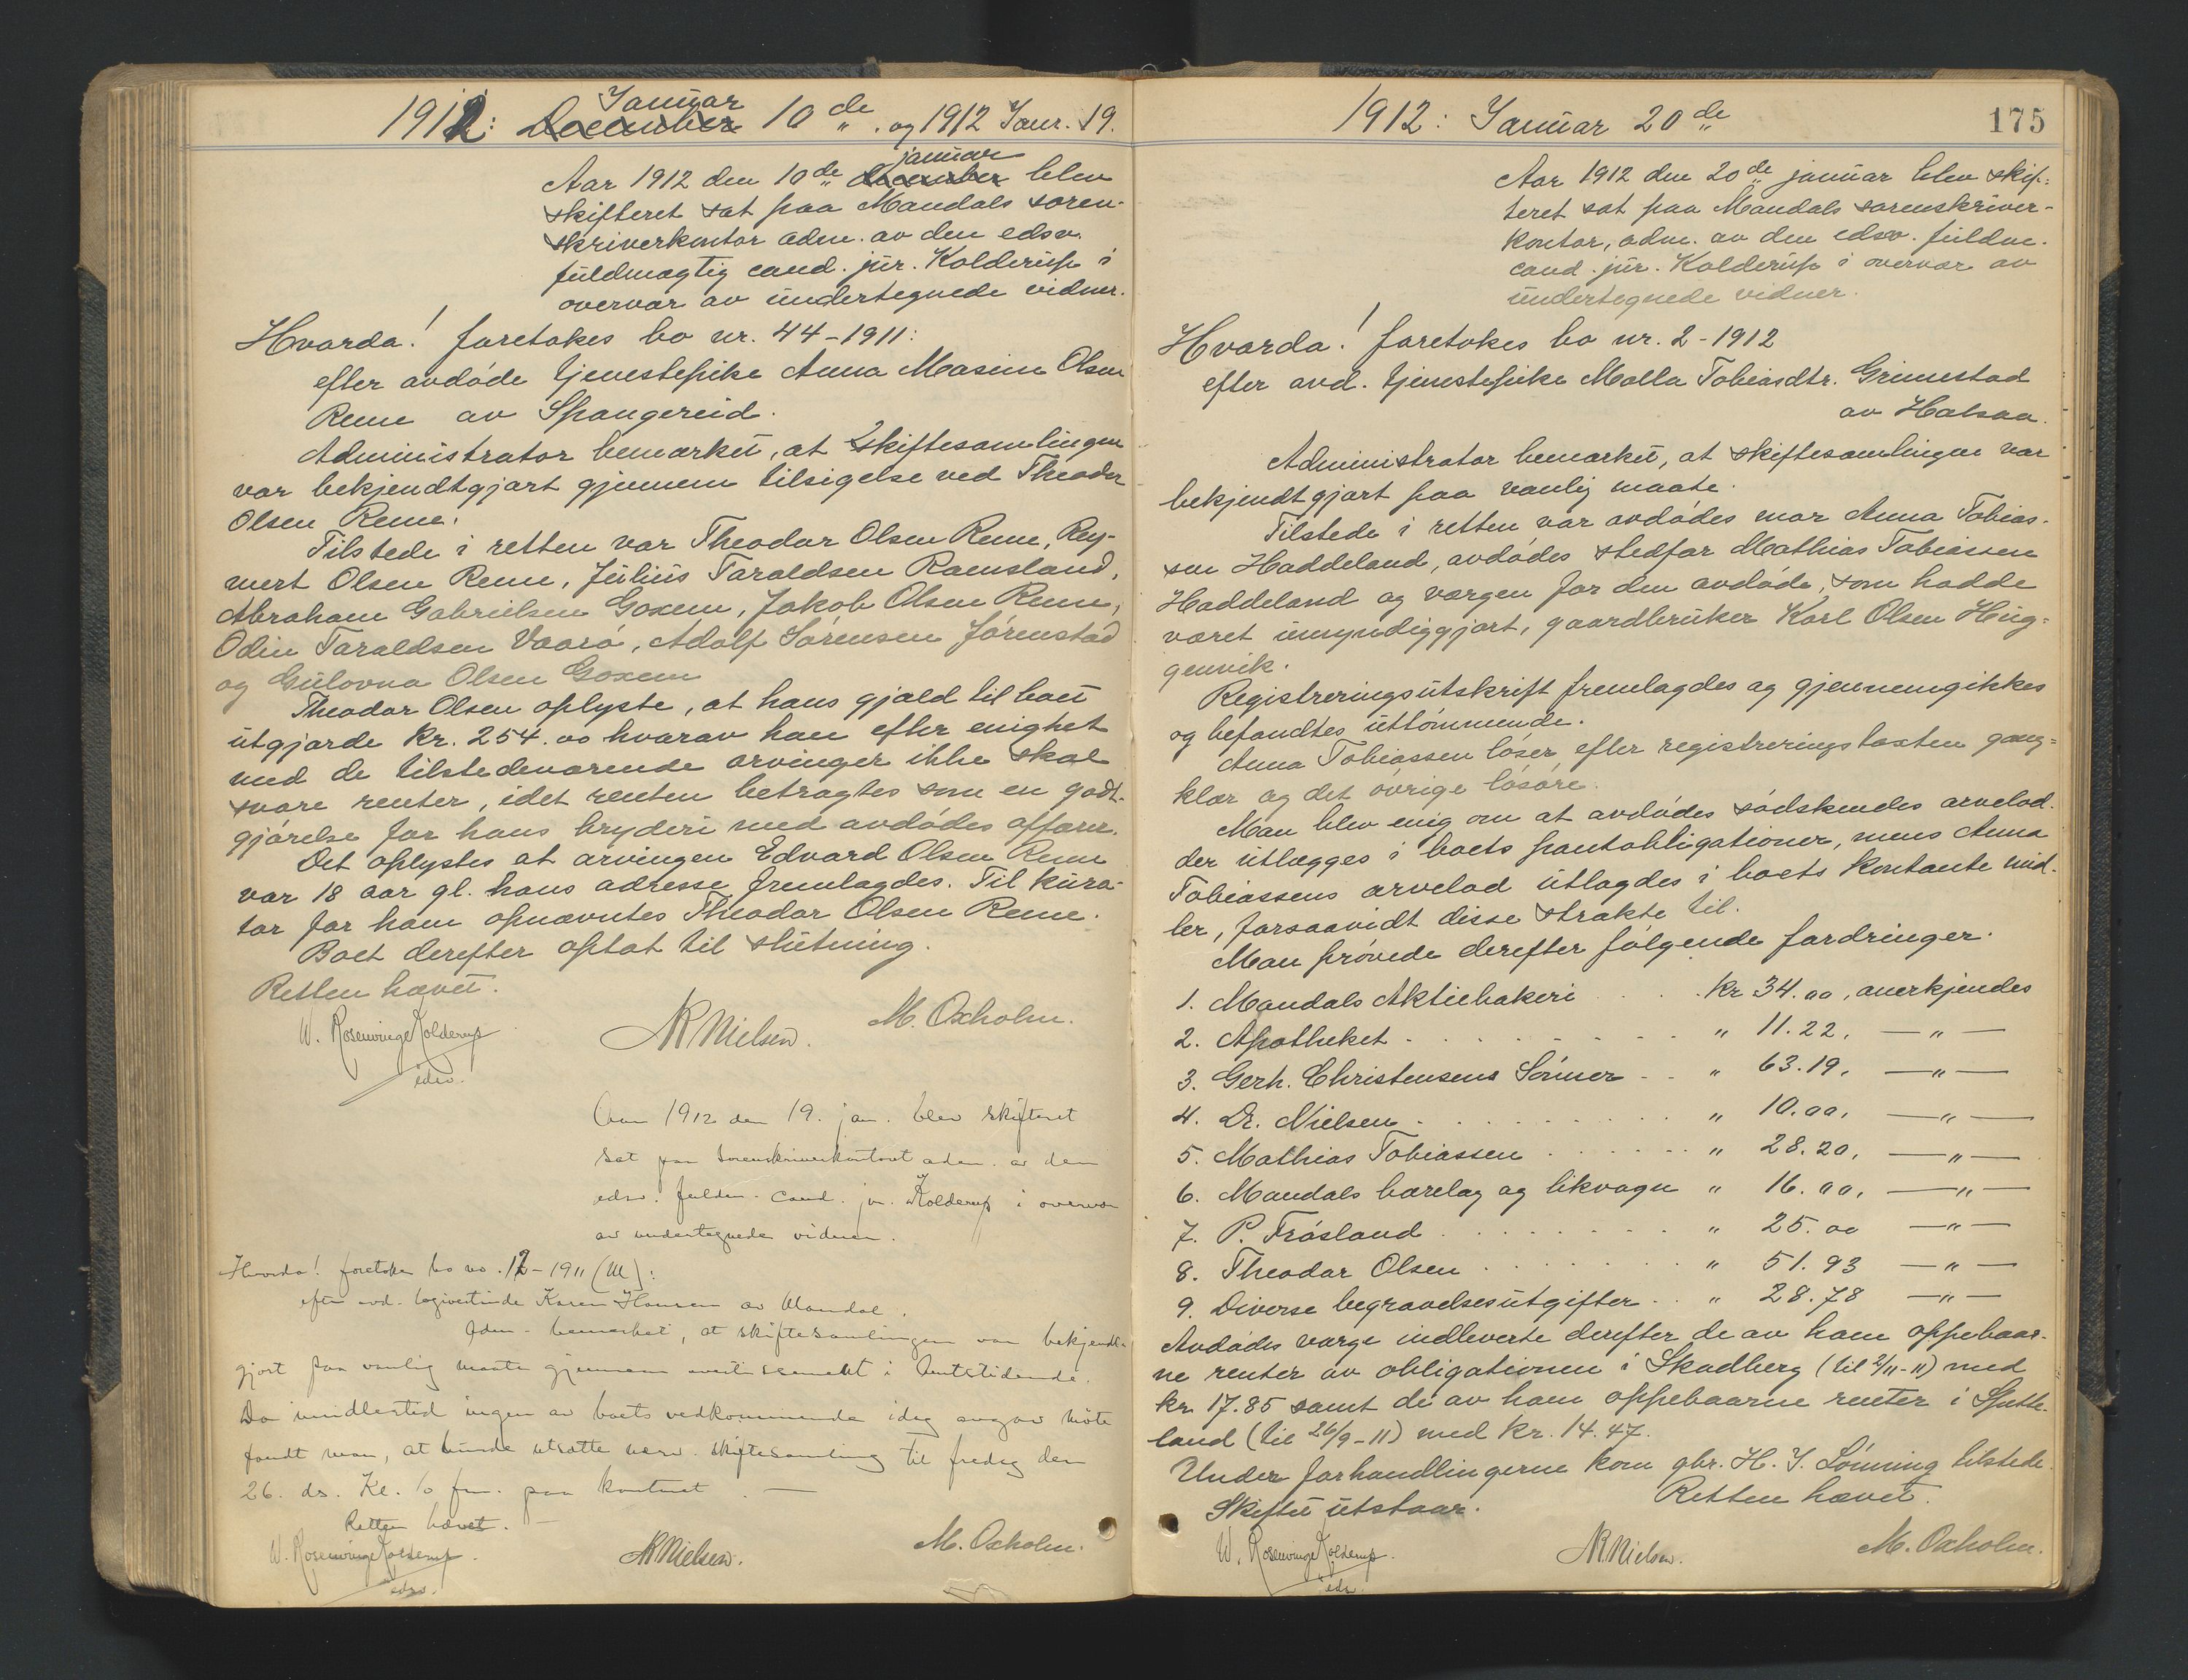 1912: Januar December 10de og 1912 Janr. 19.
Aar 1912 den 10de december januar blev
skifteret sat paa Mandals soren-
skriverkontor adm. av den edsv.
fuldmægtig cand. jur. Kolderup i
overvær av undertegnede vidner.
Hvorda! foretokes bo nr. 44-1911:
efter avdöde tjenestepike Anna Masine Olsen
Reme av Spangereid.
Administrator bemærket, at skiftesamlingen
var bekjendtgjort gjennem tilsigelse ved Theodor
Olsen Reme.
Tilstede i retten var Theodor Olsen Reme, Rey-
mert Olsen Reme, Julius Taraldsen Ramsland,
Abraham Gabrielsen Goxem, Jakob Olsen Reme,
Odin Taraldsen Vaarö, Adolf Sörensen Jörenstad
og Gulovna Olsen Goxem
Theodor Olsen oplyste, at hans gjæld til boet
utgjorde kr. 254.00 hvorav han efter enighet
med de tilstedeværende arvinger ikke skal
svare renter, idet renten betragtes som en godt-
gjörelse for hans bryderi med avdödes affærer.
Det oplystes at arvingen Edvard Olsen Reme
var 18 aar gl. hans adresse fremlagdes. Til kura-
tor for ham opnævntes Theodor Olsen Reme.
Boet derefter optat til slutning.
Retten hævet.
W. Rosenvinge Kolderup
edsv.
NRNielsen.
M. Oxholm.
Aar 1912 den 19. jan. blev skifteret
sat paa Sorenskriverkontoret adm. av den
edsv. fuldm. cand. jur. Kolderup i overvær
av undertegnede vidner.
Hvorda! foretokes bo no. 12-1911 (M):
efter avd. logivertinde Karen Hansen av Mandal.
Adm. bemerket, at skiftesamlingen var bekjendt-
gjort paa vanlig maate gjennem avertissement i Amtstidende.
Da imidlertid ingen av boets vedkommende idag avgav möte
fandt man, at burde utsætte nærv. skiftesamling til fredag den
26. ds. Kl. 10 fm. paa kontoret. —
Retten hævet. —
W. Rosenvinge Kolderup.
edsv.
NRNielsen.
M. Oxholm.
1912: Januar 20de
175
Aar 1912 den 20de januar blev skif-
teret sat paa Mandals sorenskriver-
kontor, adm. av den edsv. fuldm.
cand. jur. Kolderup i overvær av
undertegnede vidner.
Hvorda! foretokes bo nr. 2-1912
efter avd. tjenestepike Malla Tobiasdtr. Grimestad
av Halsaa.
Administrator bemærket, at skiftesamlingen var
bekjendtgjort paa vanlig maate.
Tilstede i retten var avdödes mor Anna Tobias-
sen Haddeland, avdödes stedfar Mathias Tobiassen
Haddeland og værgen for den avdöde, som hadde
været umyndiggjort, gaardbruker Karl Olsen Heig-
genvik.
Registreringsutskrift fremlagdes og gjennemgikkes
og befandtes uttömmende.
Anna Tobiassen löser efter registreringstaxten gang-
klær og det övrige lösöre.
Man blev enig om at avdödes södskendes arvelod-
der utlægges i boets pantobligationer, mens Anna
Tobiassens arvelod utlagdes i boets kontante mid-
ler, forsaavidt disse strakte til.
Man prövede derefter fölgende fordringer.
1. Mandals Aktiebakeri . . . kr 34.00, anerkjendes
2. Apotheket . . . . . . . . „ 11.22, —„—
3. Gerh. Christensens Sönner . . „ 63.19, —„—
4. Dr. Nielsen . . . . . . . „ 10.00, —„—
5. Mathias Tobiassen . . . . . . „ 28.20, —„—
6. Mandals bærelag og likvogn „ 16.00, —„—
7. P. Frösland . . . . . . . . „ 25.00 —„—
8. Theodor Olsen . . . . . . . „ 51.93 —„—
9. Diverse begravelsesutgifter . . „ 28.78 —„—
Avdödes værge indleverte derefter de av ham oppebaar-
ne renter av obligationen i Skadberg (til 2/11-11) med
kr. 17.85 samt de av ham oppebaarne renter i Spette-
land (til 26/9-11) med kr. 14.47.
Under forhandlingerne kom gbr. H. J. Lönning tilstede.
Skiftet utstaar. Retten hævet.
W. Rosenvinge Kolderup.
edsv.
NRNielsen.
M. Oxholm.